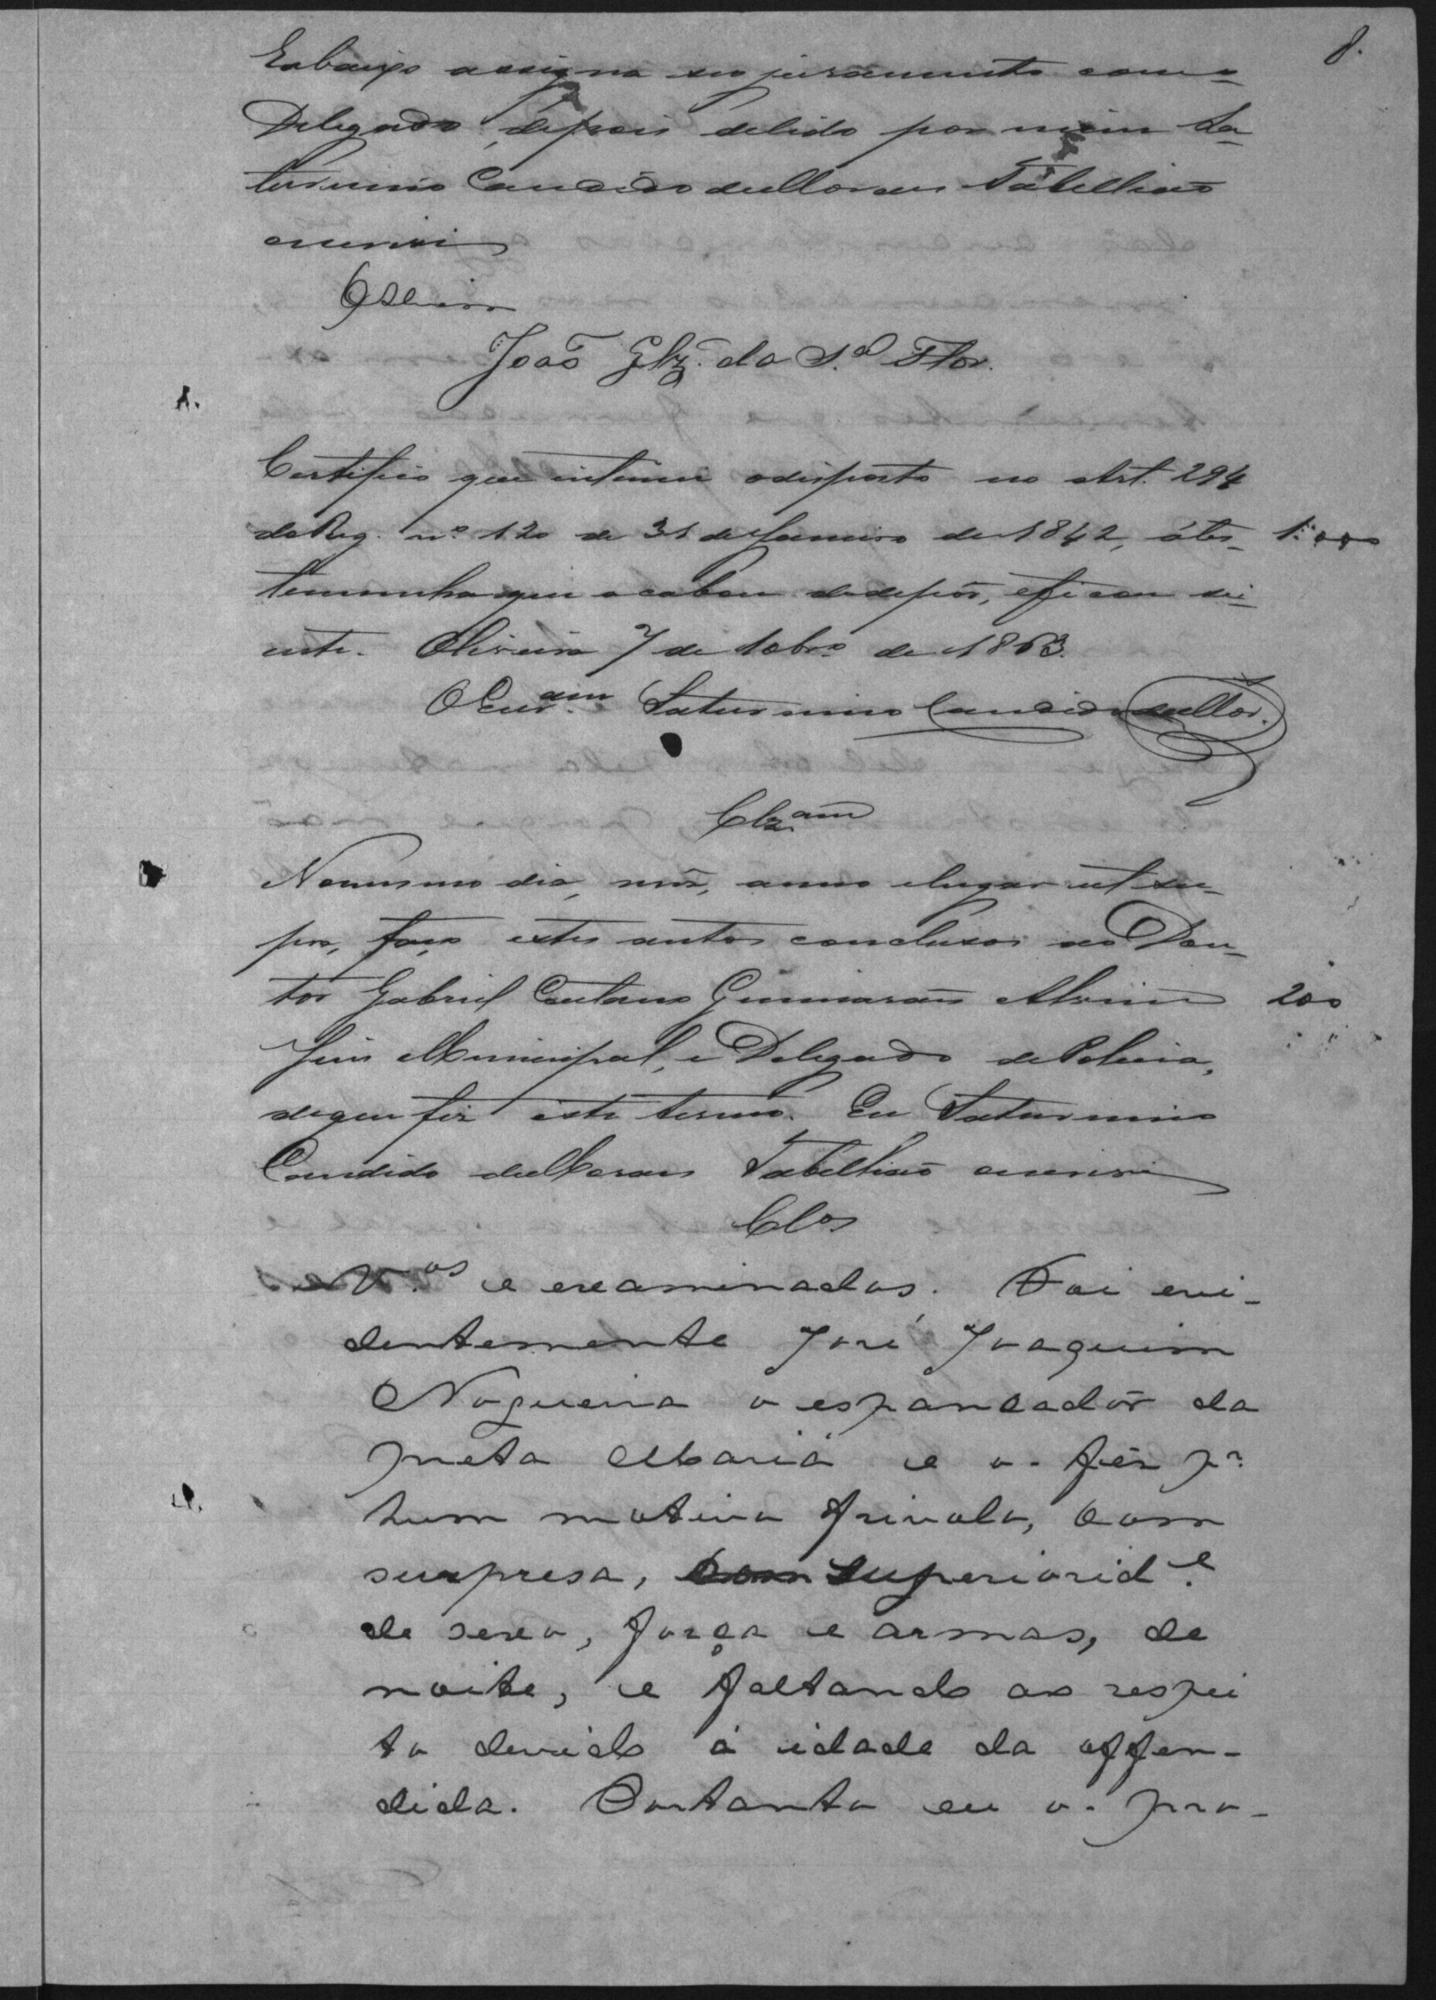 8.
Eabaixo assigna seo juramento com o
Delegado, depois de lido por mim Sa-
turnino Candido de Moraes Tabellião
escrevi
Alvim
João Glz. da S.ª Flor.
Certifico que intimei o disposto no Art. 294
do Reg. nº 120 de 31 de Janeiro de 1842, á tes- 1:000
temunha que acabou de depôr, e ficou sci-
ente. Oliveira 7 de 10brº de 1863.
O Escr.am Saturnino Candido de Mor.
Clz.am
No mesmo dia, mes, anno e lugar ut su-
pra, faço estes autos conclusos ao Dou-
tor Gabriel Caetano Guimarães Alvim 200
Juis Municipal, e Delegado de Policia,
de que fiz este termo. Eu Saturnino
Candido de Moraes Tabellião escrevi
Clos
V.os e examinados. Foi evi-
dentemente José Joaquim
Nogueira o espancador da
preta Maria e o fez pr
hum motivo frivolo, com
surpresa, superiorid.e
de sexo, força e armas, de
noite, e faltando ao respei
to devido á idade da offen-
dida. Portanto eu o pro-